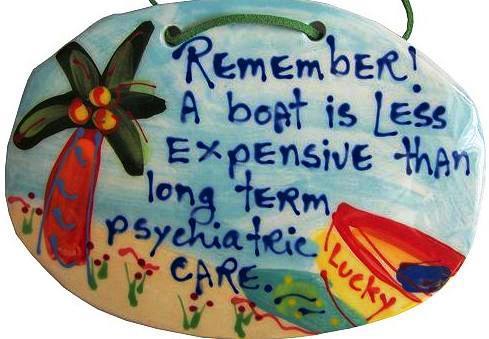 Remember!
A boat is Less
Expensive than
long term
psychiatric
CARE.
Lucky